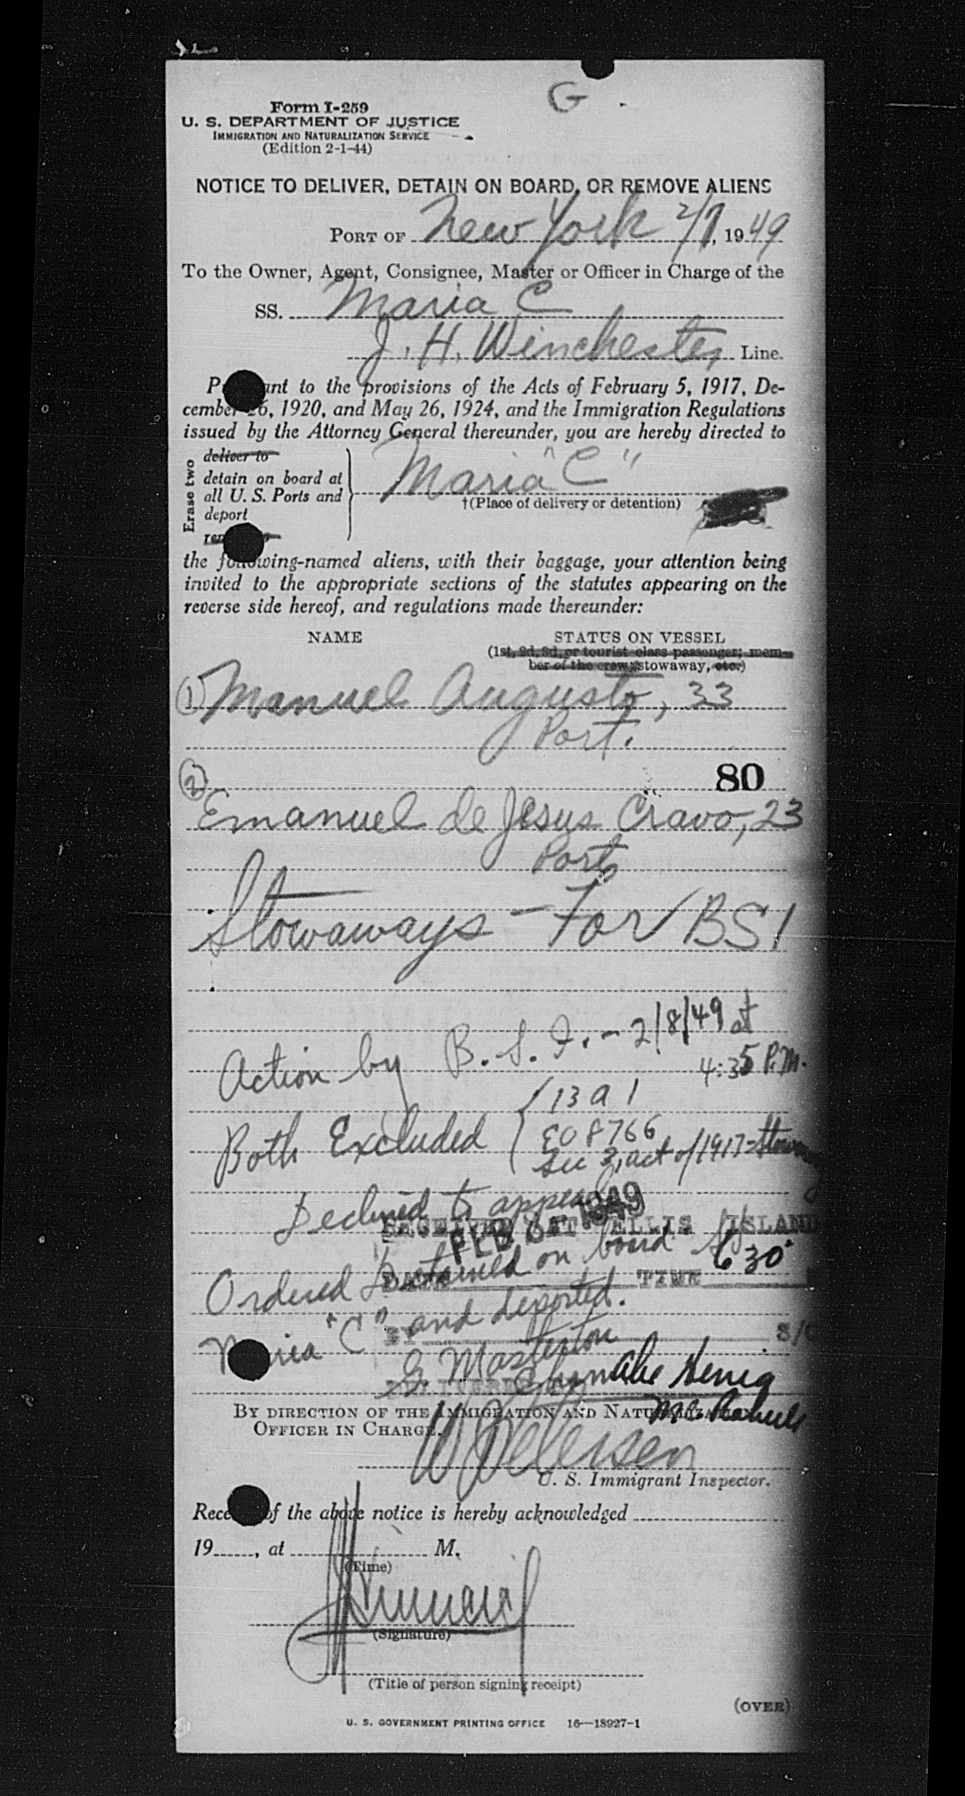 G
Form I-259
U. S. DEPARTMENT OF JUSTICE
IMMIGRATION AND NATURALIZATION SERVICE
(Edition 2-1-44)
NOTICE TO DELIVER, DETAIN ON BOARD, OR REMOVE ALIENS
PORT OF New York 2/7, 1949
To the Owner, Agent, Consignee, Master or Officer in Charge of the
SS. Maria C
J. H. Winchester Line.
to the provisions of the Acts of February 5, 1917, De-
cember 26, 1920, and May 26, 1924, and the Immigration Regulations
issued by the Attorney General thereunder, you are hereby directed to
Erase two
deliver to
detain on board at
all U. S. Ports and
deport
Maria "C"
†(Place of delivery or detention)
the following-named aliens, with their baggage, your attention being
invited to the appropriate sections of the statutes appearing on the
reverse side hereof, and regulations made thereunder:
NAME STATUS ON VESSEL
(1st, 2d, 3d, or tourist class passenger; mem-
ber of the crew; stowaway, etc.)
① Manuel Augusto, 33
Port.
80
② Emanuel de Jesus Cravo, 23
Port
Stowaways - For BSI
Action by B. S. I. - 2/8/49 at
4:35 P.M.
Both Excluded { 13 a 1
EO 8766
Sec 3, act of 1917-
Declined to appeal
RECEIVED AT ELLIS ISLAND
FEB 1949
Ordered Detained on board
TIME 630
"C" and deported.
BY
G. Masterton
Chrmn Abe Henig
BY DIRECTION OF THE IMMIGRATION AND
OFFICER IN CHARGE.
W Petersen
U. S. Immigrant Inspector.
of the above notice is hereby acknowledged
19 , at M.
(Time)
(Signature)
(Title of person signing receipt)
(OVER)
U. S. GOVERNMENT PRINTING OFFICE 16—18927-1